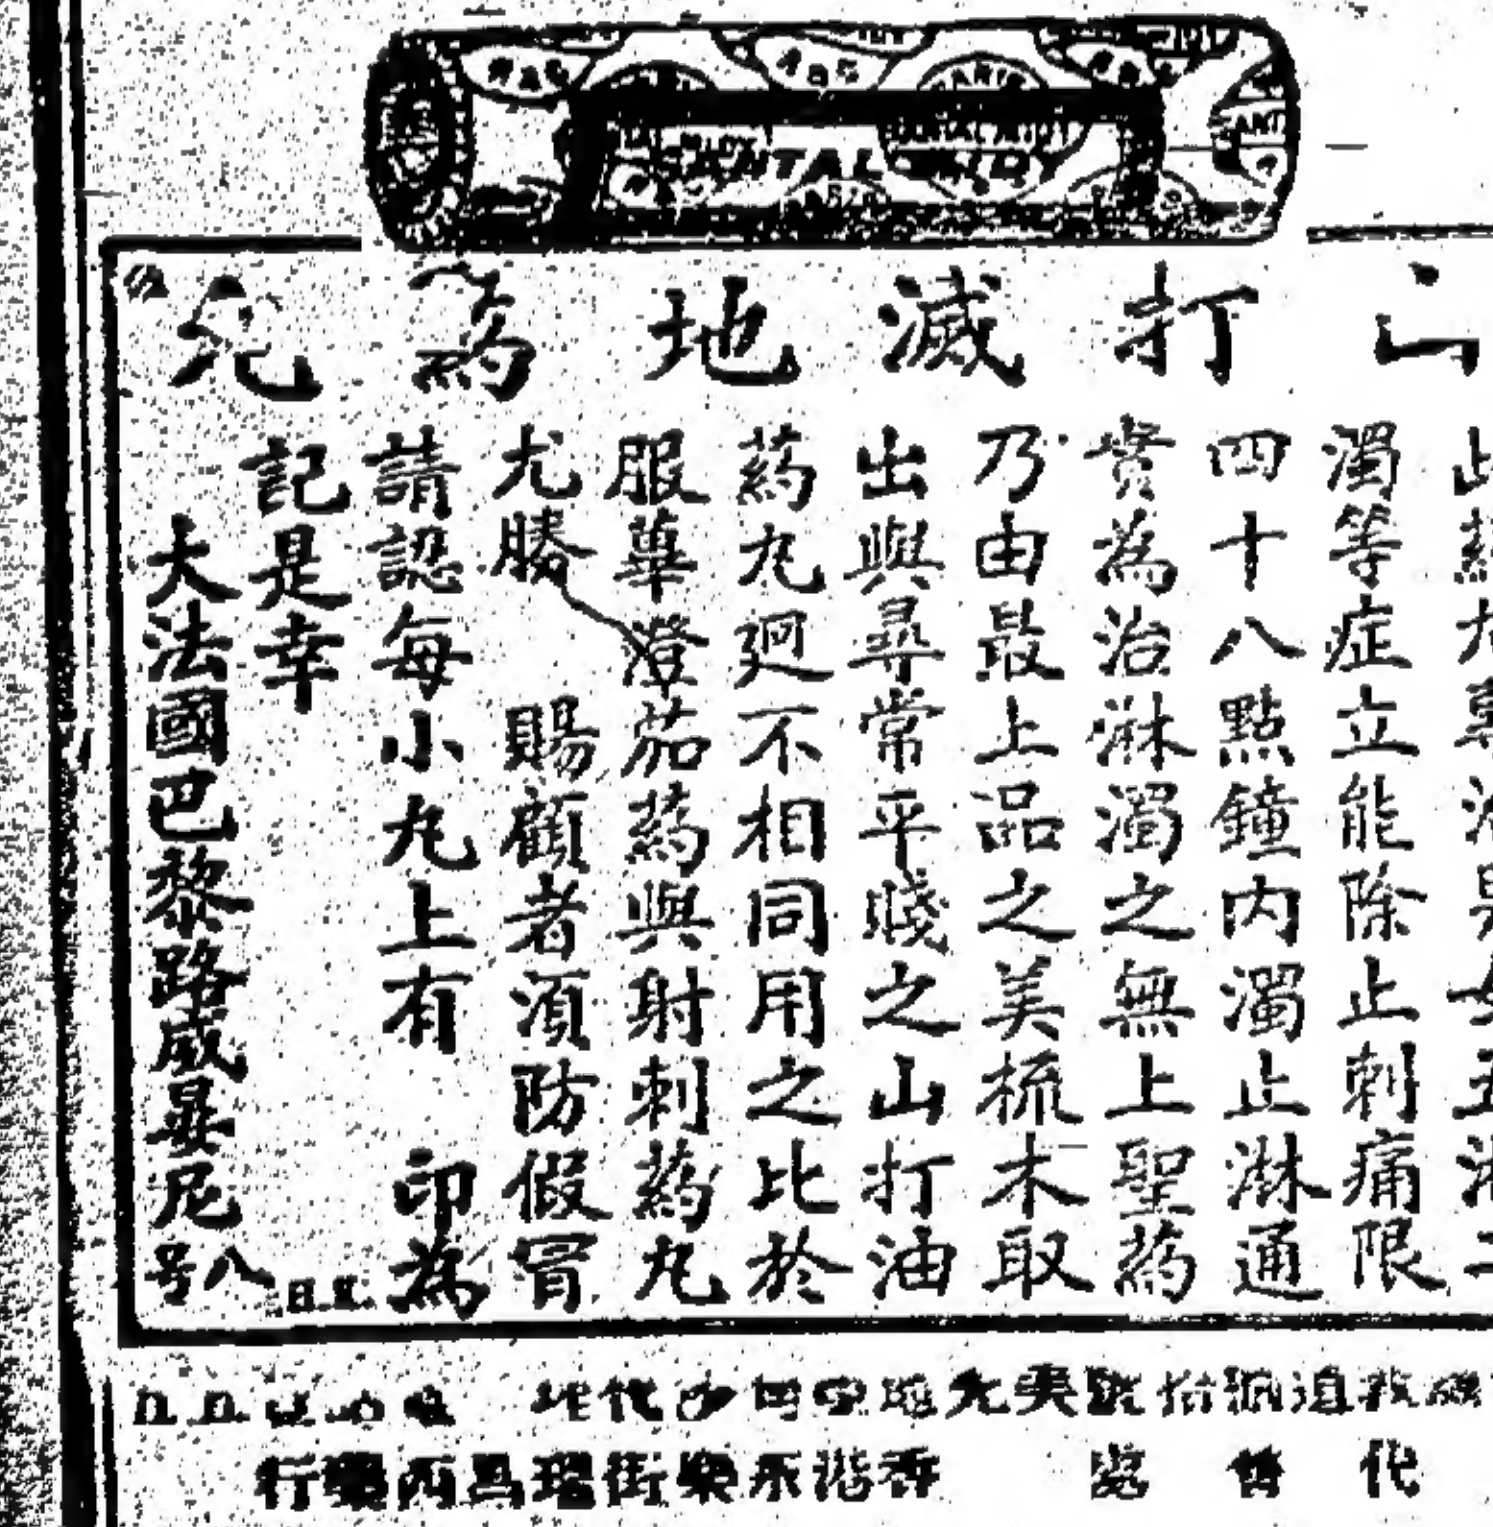 SANTAL MIDY
山打滅地為兒
此藥丸專治男女五淋二
濁等症立能除止刺痛限
四十八點鐘內濁止淋通
實為治淋濁之無上聖藥
乃由最上品之美梳木取
出與尋常平賤之山打油
藥丸迥不相同用之比於
服蓽澄茄藥與射刺藥丸
尤勝 賜顧者須防假冒
請認每小丸上有 印為
記是幸
大法國巴黎路威晏尼八号
代售處
香港永樂街瑞昌西藥行